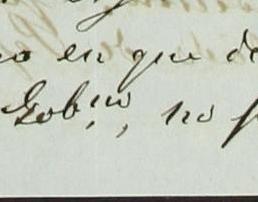 en que de
Gob.no, no